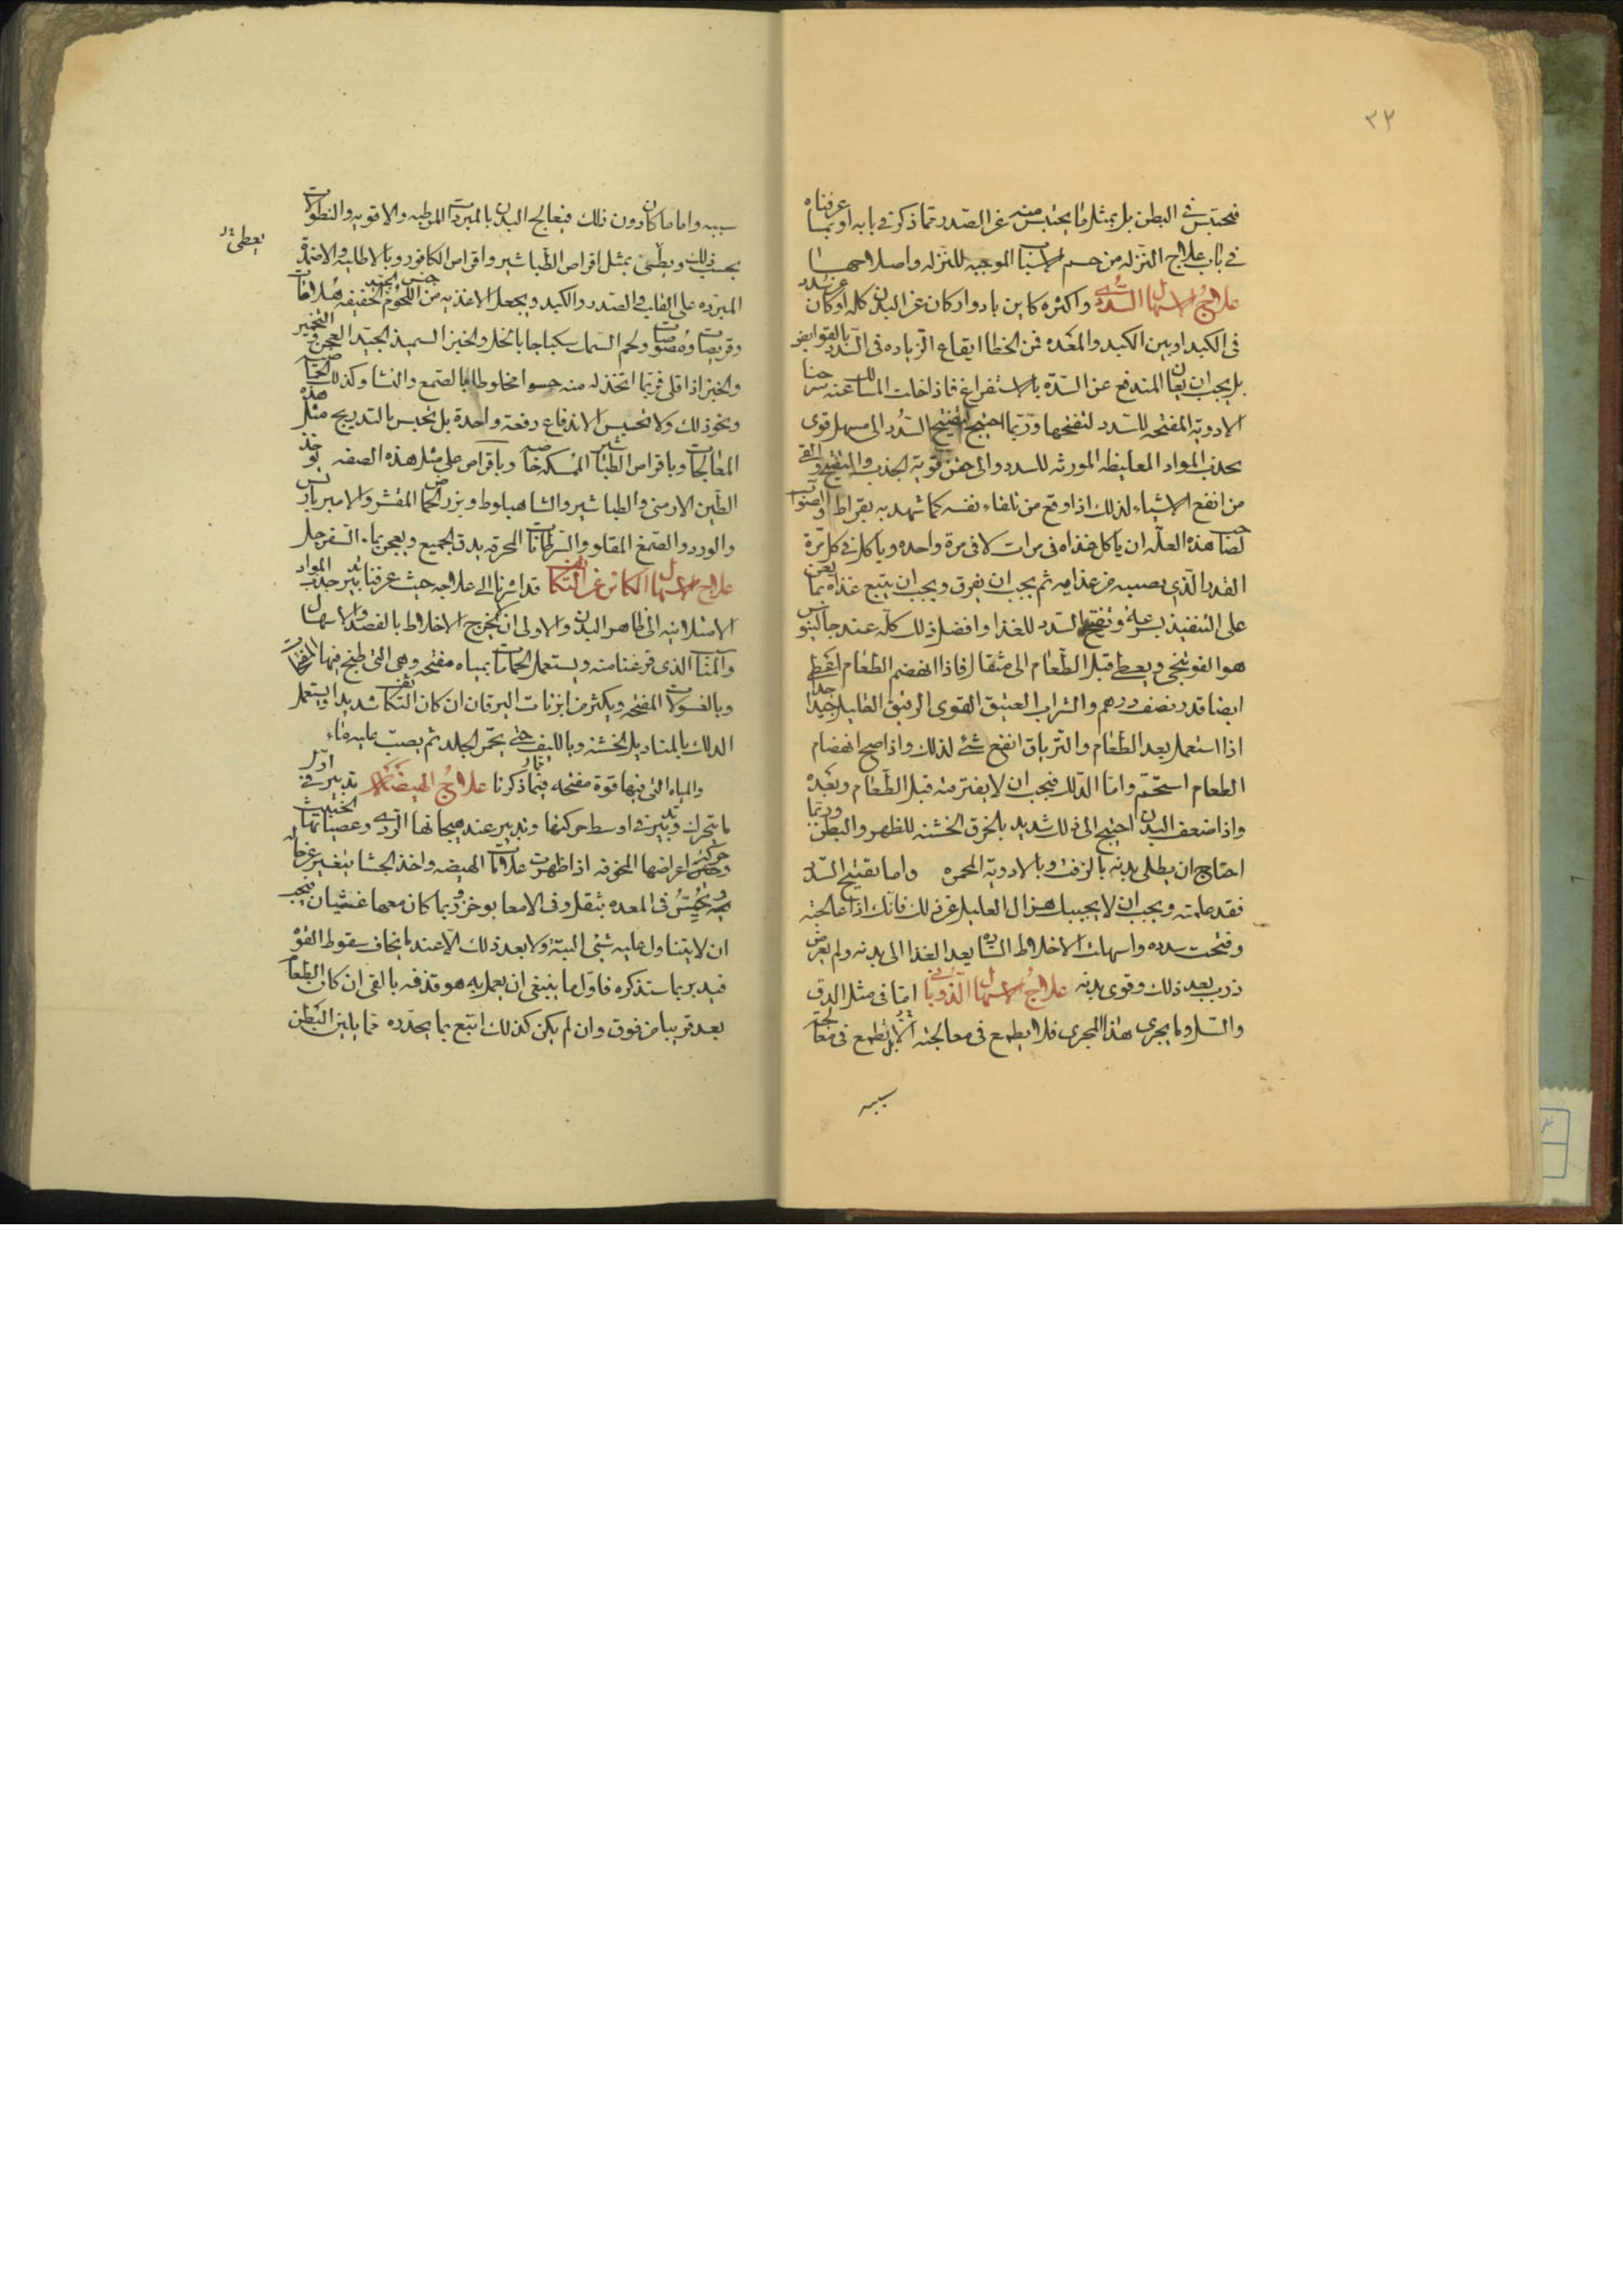 ٣٢
فيحتبس في البطن بل بمثل ما يحتبس منه عن الصدر مما ذكر في بابه او بما عرفناه
في باب علاج النزله من حسم الاسباب الموجبه للنزله واصلاحها
علاج الاسهال السددى واكثره كاين بادوار كان عن البدن كله او كان عن سدد
فى الكبد او بين الكبد والمعده فمن الخطا ايقاع الزياده فى السدد بالقوابض
بل يجب ان يعان المندفع عن السدة بالاستفراغ فاذا خلت المسالك عنه سرحنا
الادوية المفتحه للسدد لتفتحها وربما احتيج لتفتيح السدد الى مسهل قوى
يجذب المواد الغليظه المورثه للسدد والى حقن قوية الجذب والتنفيذ والقى
من انفع الاشياء لذلك اذا وقع من تلقاء نفسه كما شهد به بقراط والصواب
لصاحب هذه العله ان ياكل غذاه فى مرات لا فى مرة واحده وياكل في كل مرة
القدر الذي يصيبه من غذايه ثم يجب ان يفرق ويجب ان يتبع غذاه بما يعين
على التنفيذ بسرعة وتفتيح السدد للغذا وافضل ذلك كله عند جالينوس
هو الفوتنجي ويعطى قبل الطعام الى مثقال فاذا انهضم الطعام اعطى
ايضا قدر نصف درهم والشراب العتيق القوى الرقيق القليل جيد جدا
اذا استعمل بعد الطعام والترياق انفع شئ لذلك واذا صح انهضام
الطعام استحم واما الدلك فيجب ان لا يفتر منه قبل الطعام وبعده
واذا ضعف البدن احتيج الى دلك شديد بالخرق الخشنه للظهر والبطن وربما
احتاج ان يطلى بدنه بالزفت وبالادوية المحمره واما تفتيح السدد
فقد علمته ويجب ان لا يجيبك هزال العليل عن ذلك فانك اذا عالجته
وفتحت سدده واسهلت الاخلاط السادة يعد الغذا الى بدنه ولم يعرض
ذرب بعد ذلك وقوى بدنه علاج الاسهال الذوبانى اما فى مثل الدق
والسل وما يجرى هذا المجرى فلا يطمع فى معالجته الا بل تطمع فى معالجة
سببه
سببه واما ما كان دون ذلك فيعالج البدن بالمبردات المرطبه والاقويه والنطولات
بحسب ذلك ويطفى بمثل اقراص الطباشير واقراص الكافور وبالاطليه والاضمدة
المبرده على القلب والصدر والكبد ويجعل الاغذيه من جنس اللحوم الخفيفه هلامات
وقريصات ومصوصات ولحم السمك سكباجا بالخل والخبز السميذ الجيد العجن والتخمير
والخبز اذا قلى فربما اتخذ له منه حسوا مخلوطا بالصمغ والنشا وكذلك
ونحو ذلك ولا تحبس الاندفاع دفعة واحدة بل تحبس بالتدريج مثل هذه
المعالجات وباقراص الطباشير الممسكه خاصه وباقراص على مثل هذه الصفه يوخذ
الطين الارمنى والطباشير والشاهبلوط وبزر الحماض المقشر والاميرباريس
والورد والصمغ المقلو والسرطانات المحرقه يدق الجميع ويعجن بماء السفرجل
علاج الاسهال الكائن عن التكاثف قد اشرنا الى علاجه حيث عرفنا تدبير جذب المواد
الامتلائيه الى ظاهر البدن والاولى ان تخرج الاخلاط بالفصد والاسهال
الذى فرغنا منه ويستعمل الحمامات بمياه مفتحه وهى التى طبخ فيها
وبالغسولات المفتحه ويكثر من ابزنات اليرقان ان كان التكاثف شديدا ويستعمل
الدلك بالمناديل الخشنه وبالليف حتى يحمر الجلد ثم يصب عليه ماء
والمياه التى فيها قوة مفتحه فيما ذكرنا علاج الهيضة تدبير في اول
ما يتحرك وتدبير في اوسط حركتها وتدبير عند هيجانها الردى وعصيانها الخبيث
وحركة اعراضها المخوفه اذا ظهرت علامات الهيضه واخذ الجشا يتغير عن حاله
ويحس فى المعده بثقل وفى الامعا بوخز وربما كان معها غشيان فيجب
ان لا يتناول عليه شئ البتة ولا بعد ذلك الا عند ما يخاف سقوط القوة
فيدبر بما سنذكره فاول ما ينبغى ان يعمل به هو قذفه بالقى ان كان الطعام
بعد قريبا من فوق وان لم يكن كذلك اتبع بما يحدره مما يلين البطن